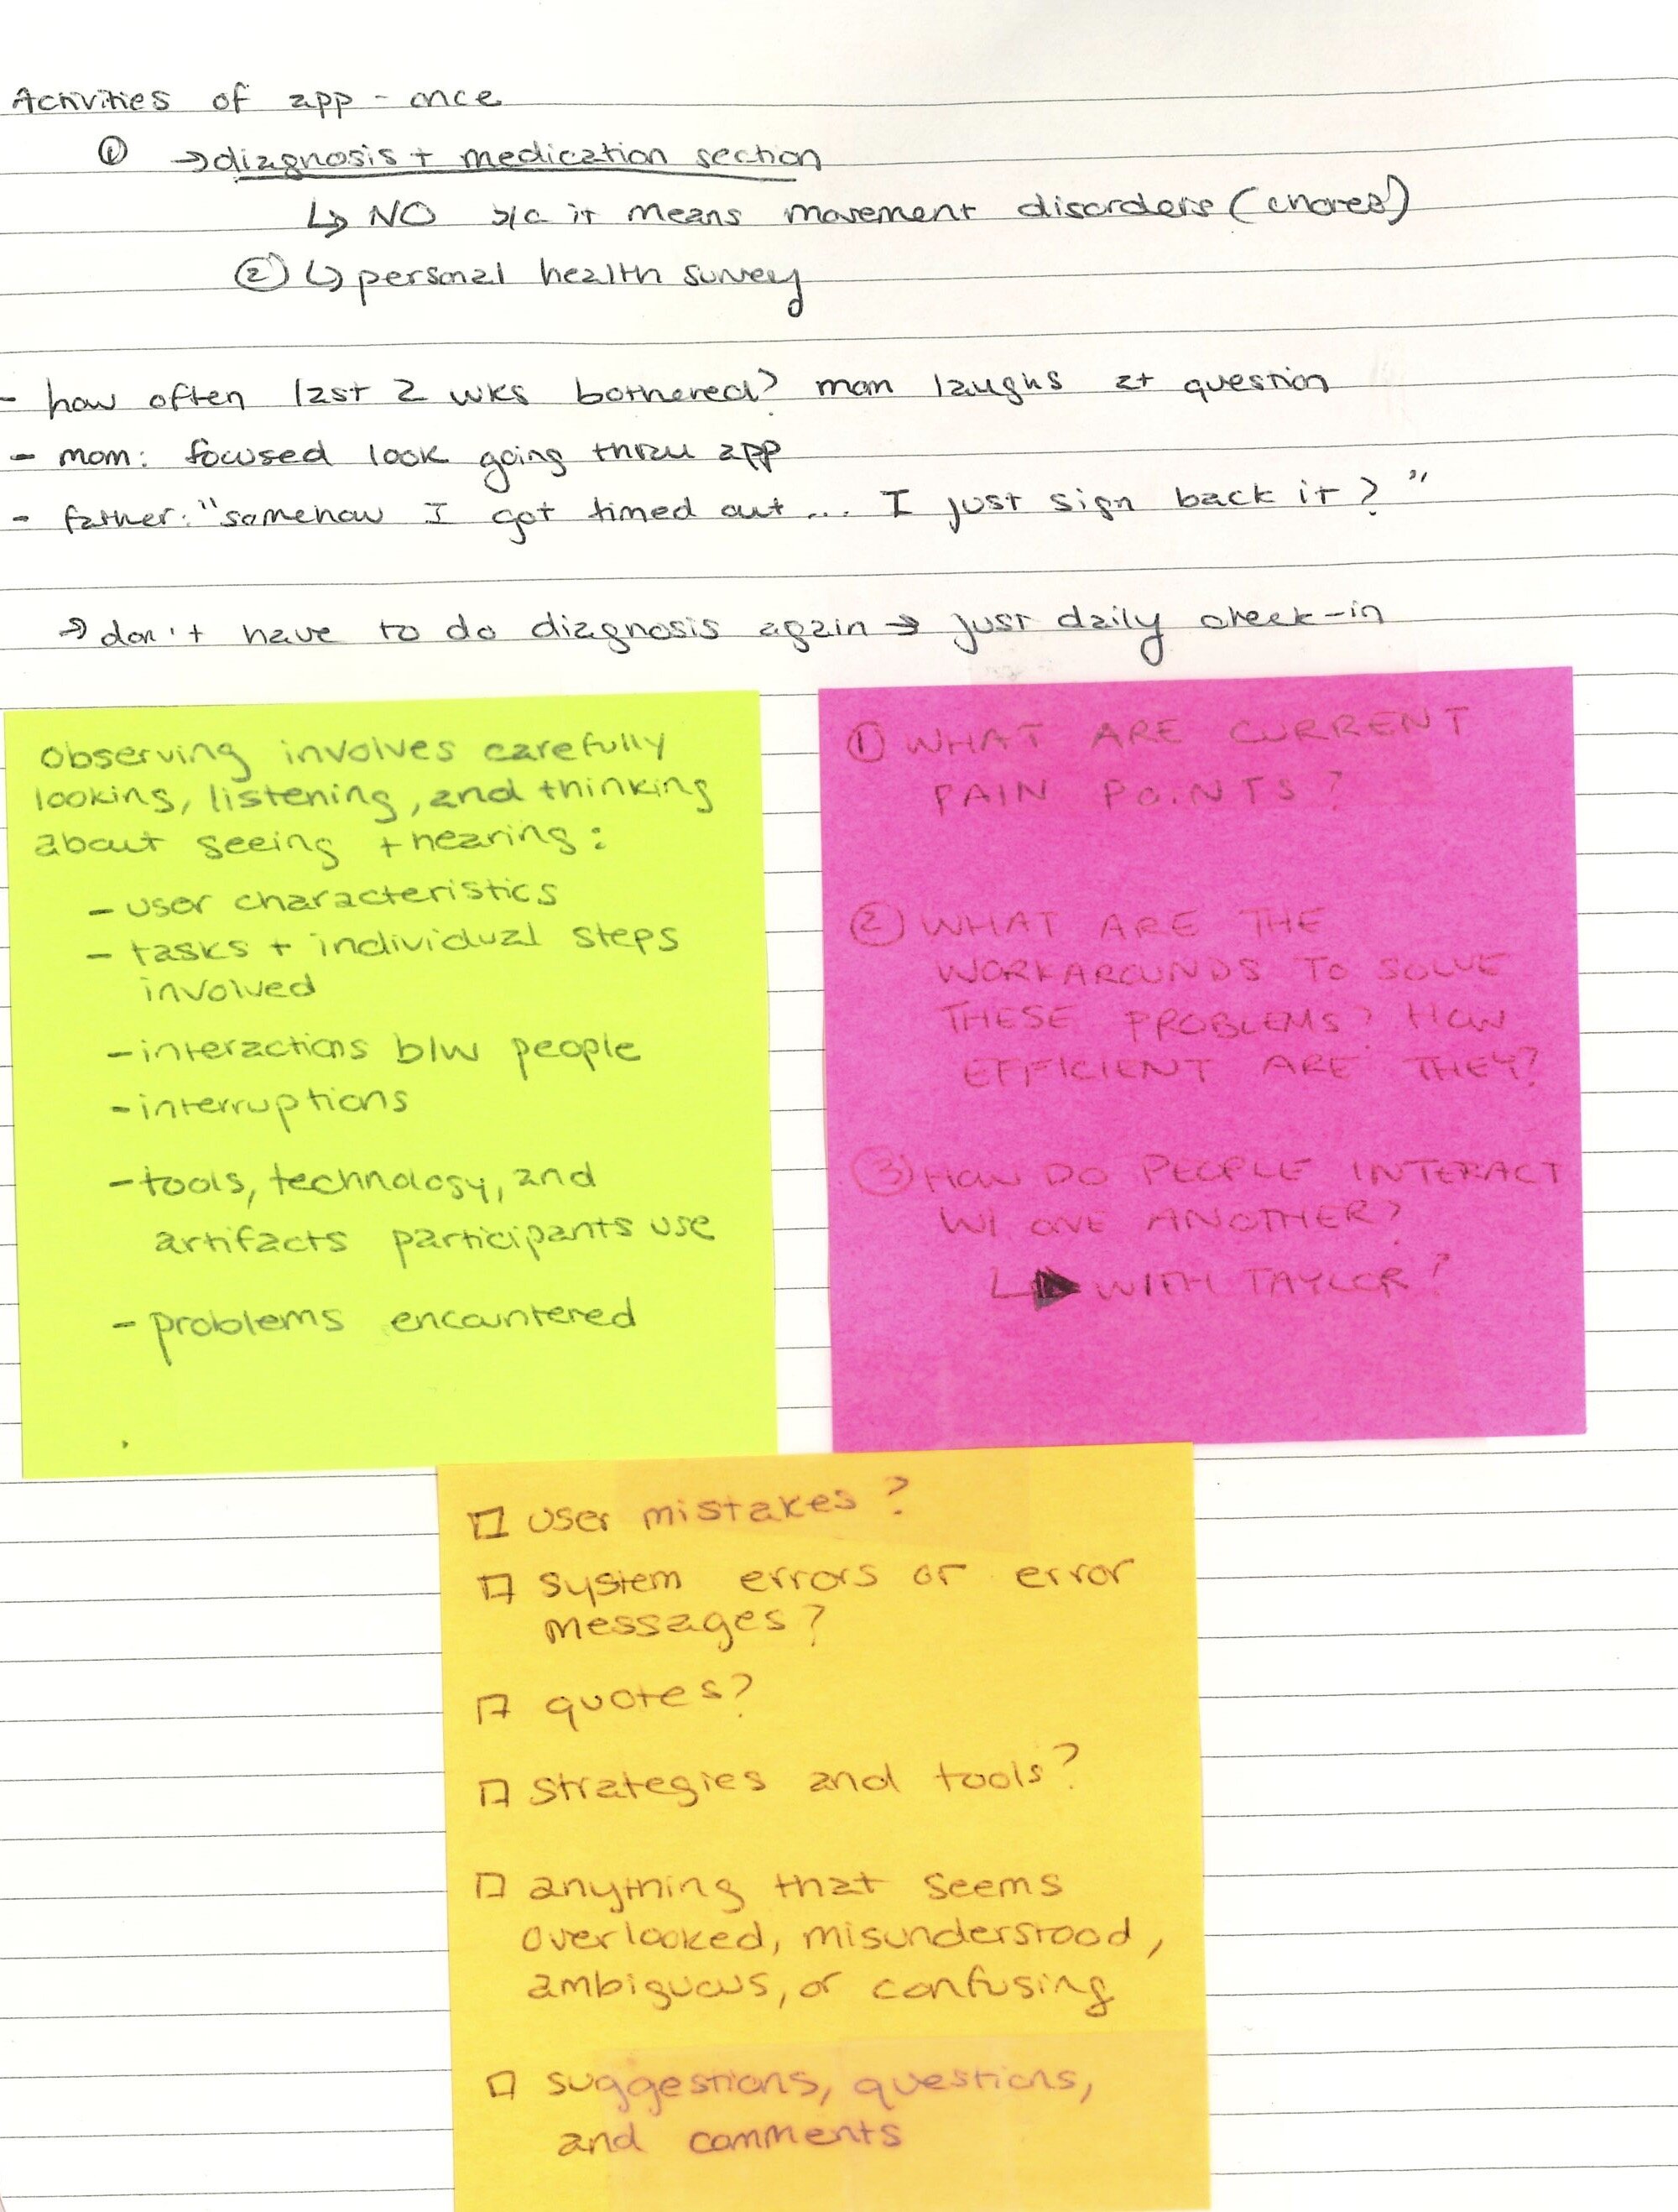 Activities of app - once
① → diagnosis + medication section
↳ NO b/c it means movement disorders (chorea)
② ↳ personal health survey
- how often last 2 wks bothered? mom laughs at question
- mom: focused look going thru app
- father: "somehow I got timed out... I just sign back it?"
→ don't have to do diagnosis again → just daily check-in
Observing involves carefully
looking, listening, and thinking
about seeing + hearing:
- user characteristics
- tasks + individual steps
involved
- interactions b/w people
- interruptions
- tools, technology, and
artifacts participants use
- problems encountered
① WHAT ARE CURRENT
PAIN POINTS?
② WHAT ARE THE
WORKAROUNDS TO SOLVE
THESE PROBLEMS? HOW
EFFICIENT ARE THEY?
③ HOW DO PEOPLE INTERACT
W/ ONE ANOTHER?
↳ WITH TAYLOR?
□ user mistakes?
□ system errors or error
messages?
□ quotes?
□ strategies and tools?
□ anything that seems
overlooked, misunderstood,
ambiguous, or confusing
□ suggestions, questions,
and comments